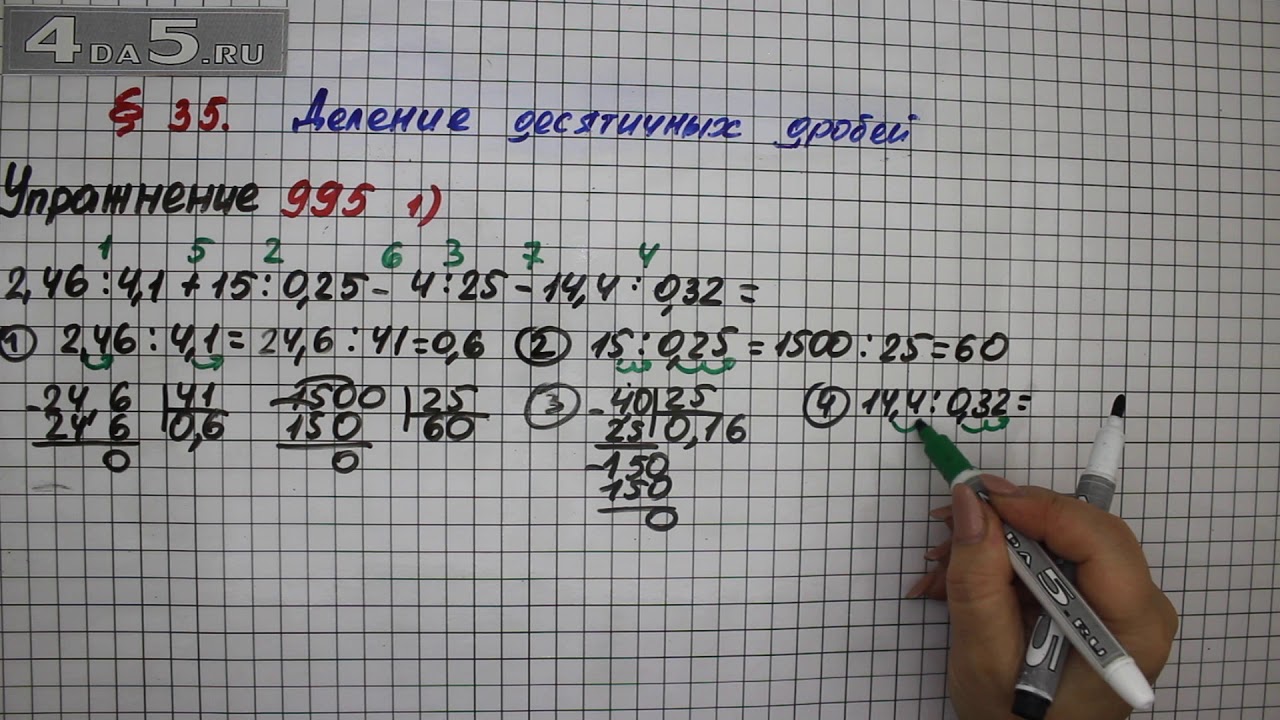 4DA5.RU
§ 35. Деление десятичных дробей
Упражнение 995 1)
1 5 2 6 3 7 4
2,46 : 4,1 + 15 : 0,25 - 4 : 25 - 14,4 : 0,32 =
① 2,46 : 4,1 = 24,6 : 41 = 0,6 ② 15 : 0,25 = 1500 : 25 = 60
- 24 6 | 41 - 1500 | 25 ③ - 40 | 25 ④ 14,4 : 0,32 =
24 6 | 0,6 150 | 60 25 | 0,16
0 0 - 150
150
0
DA5.RU
5